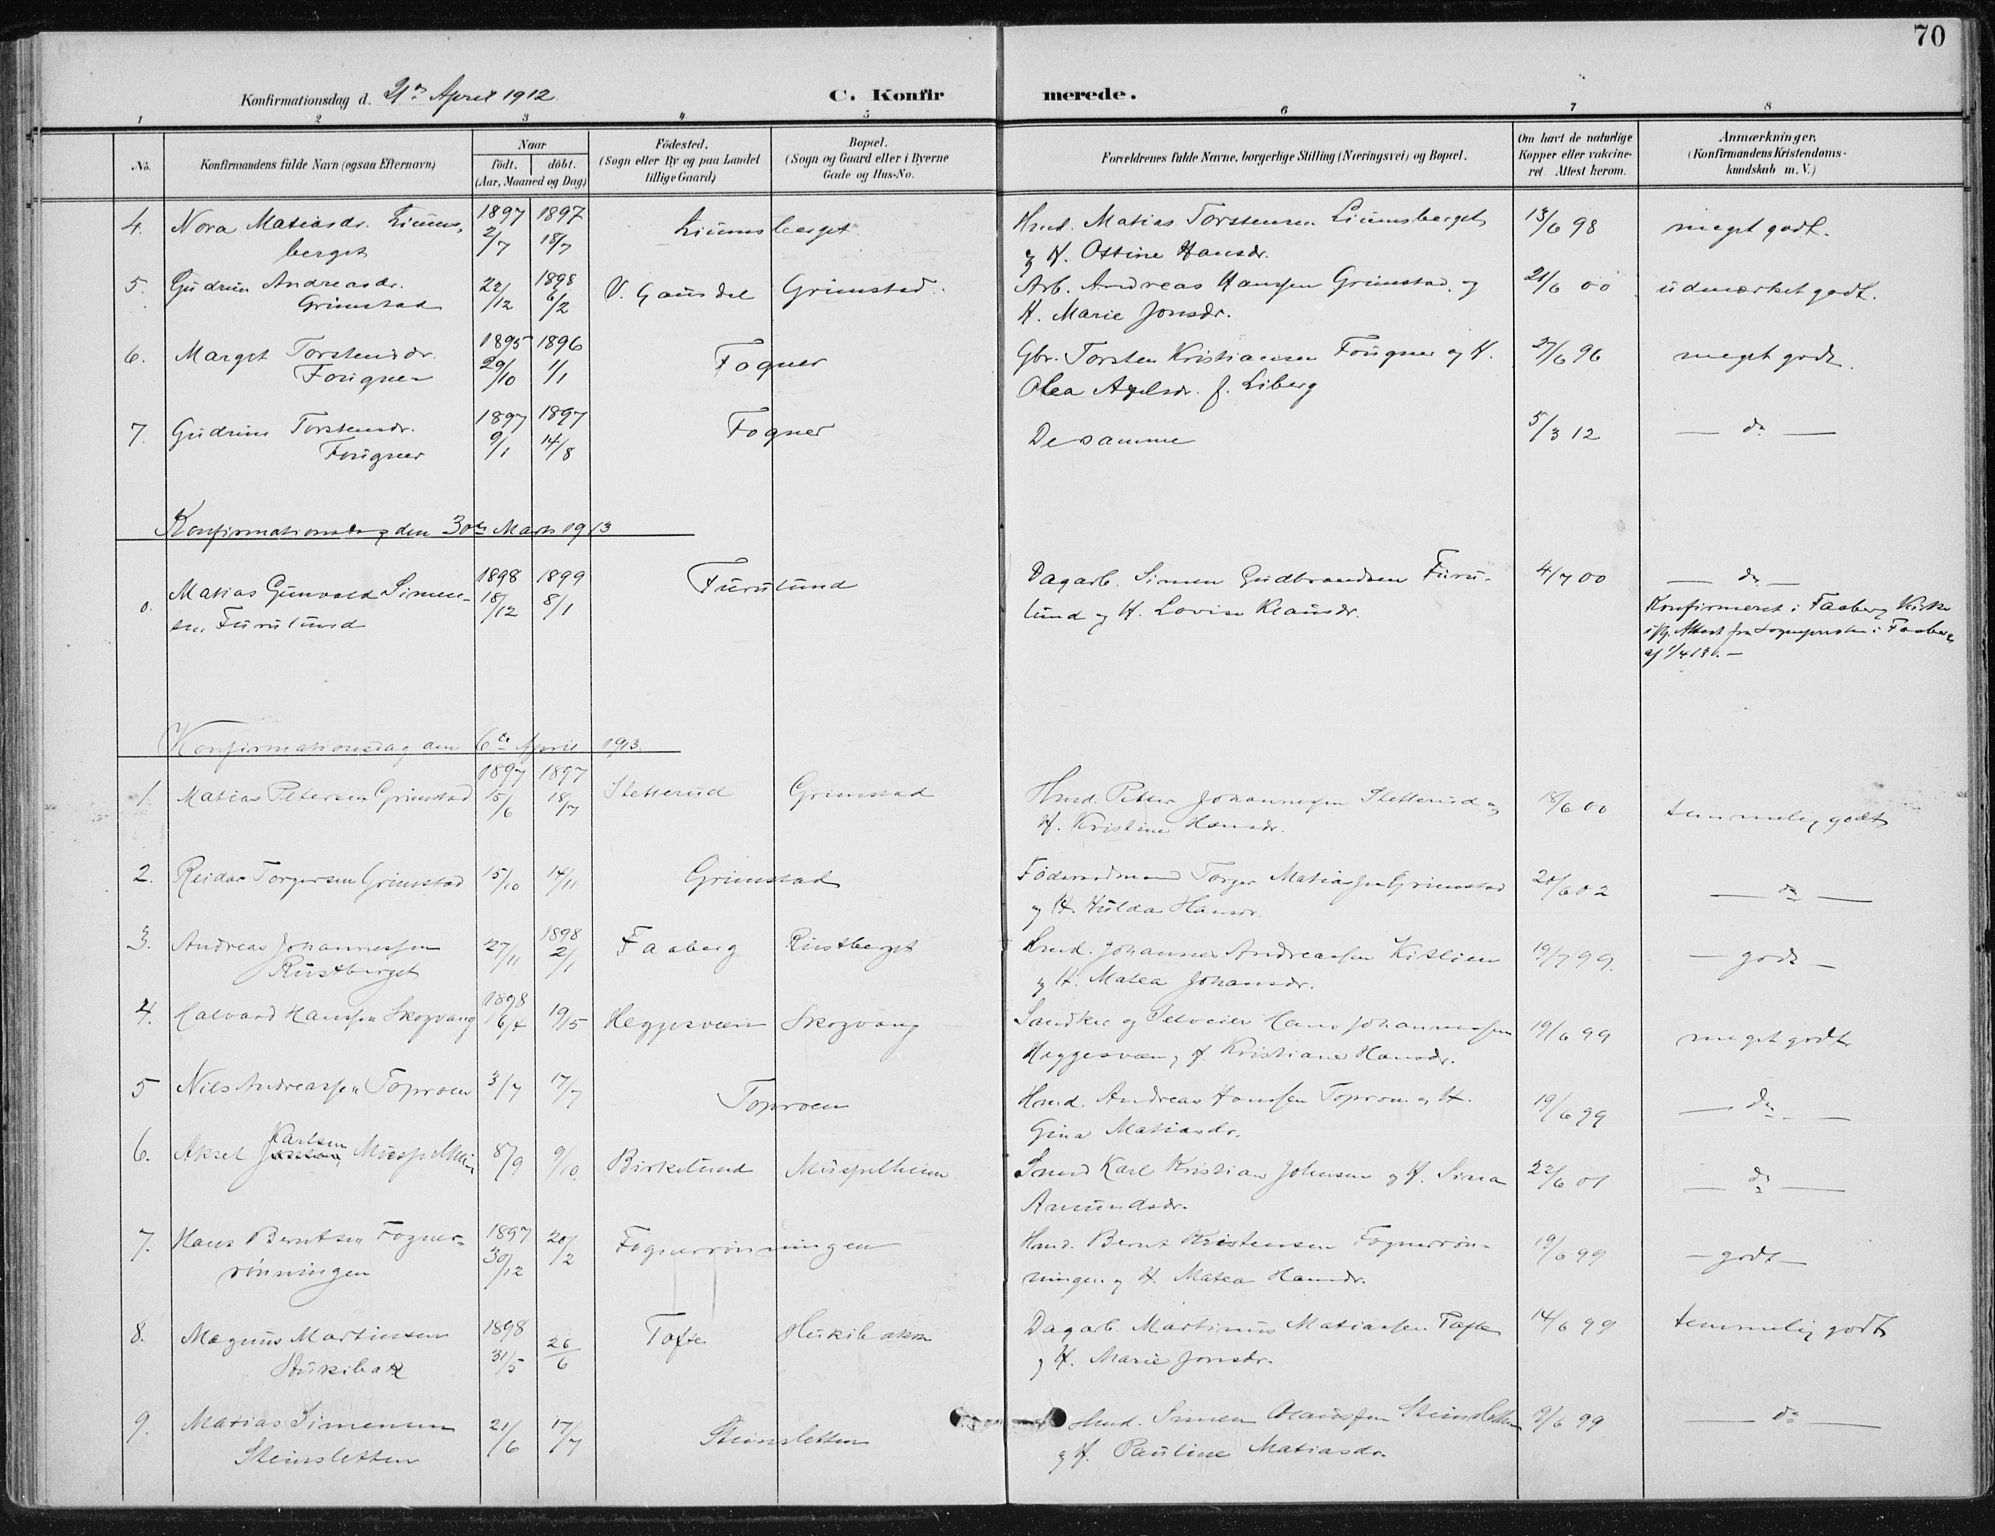 70
Konfirmationsdag d. 21de April 1912. C. Konfirmerede.
1 2 3 4 5 6 7 8
No. Konfirmandens fulde Navn (ogsaa Efternavn) Naar födt. döbt. (Aar, Maaned og Dag) Födested. (Sogn eller By og paa Landet tillige Gaard) Bopæl. (Sogn og Gaard eller i Byerne Gade og Hus-No. Forældrenes fulde Navne, borgerlige Stilling (Næringsvei) og Bopæl. Om havt de naturlige Kopper eller vakcineret Attest herom. Anmærkninger. (Konfirmandens Kristendomskundskab m. V.)
4. Nora Matiasdr. Liums- 1897 1897 Liumsberget Hmd. Matias Torstensen Liumsberget 13/6 98 meget godt.
berget 2/7 18/7 og H. Ottine Hansdr.
5. Gudrun Andreasdr. 22/12 1898 V. Gausdal Grimstad. Arb. Andreas Hansen Grimstad og 21/6 00 udmærket godt.
Grimstad 6/2 H. Marie Jonsdr.
6. Marget Torstensdr. 1895 1896 Fogner Gbr. Torsten Kristiansen Fougner og H. 27/6 96 meget godt.
Fougner 29/10 1/1 Olea Axelsdr. f. Liberg
7. Gudrun Torstensdr. 1897 1897 Fogner De samme 5/3 12 — do —
Fougner 9/1 14/8
Konfirmationsdag den 30te Marts 1913
0. Matias Gunvald Simen- 1898 1899 Furulund Dagarb. Simen Gudbrandsen Furu- 4/7 00 — do —
sen Furulund 18/12 8/1 lund og H. Lovise Klausdr. Konfirmeret i Faaberg Kirke
iflg. Attest fra Sognepresten i Faaberg
af 1/4 13.—
Konfirmationsdag den 6te April 1913.
1. Matias Petersen Grimstad 1897 15/6 1897 18/7 Sletterud Grimstad Hmd. Petter Johannesen Sletterud og 18/6 00 temmelig godt
H. Kristine Hansdr.
2. Reidar Torgersen Grimstad 15/10 14/11 Grimstad Föderaadsmand Torger Matiassen Grimstad 20/6 02 — do —
og H. Hulda Hansdr.
3. Andreas Johannessen 27/11 1898 2/1 Faaberg Rustberget Hmd. Johannes Andreassen Kitlien 19/7 99. — godt —
Rustberget og H. Matea Johansdr.
4. Halvard Hansen Skogvang 1898 16/4 19/5 Heggesvæen Skogvang Snedker og Selveier Hans Johannessen 19/6 99 meget godt
Heggesvæen og H. Kristiane Hansdr.
5 Nils Andreassen Toproen 3/7 17/7 Toproen Hmd. Andreas Hansen Toproen og H. 19/6 99 — do —
Gina Matiasdr.
6. Aksel Karlsen Muspelheim 8/9 9/10. Birkelund Muspelheim Smed Karl Kristian Johnsen og H. Sina 22/6 01 — do —
Amundsdr.
7. Hans Berntsen Fogner- 1897 20/2 Fognerrönningen Hmd. Bernt Kristensen Fognerrön- 19/6 99 — godt —
rönningen 30/12 ningen og H. Matea Hansdr.
8. Magnus Martinsen 1898 26/6 Tofte Hukibakke Dagarb. Martinus Matiassen Tofte 14/6 99 temmelig godt
31/5 og H. Marie Jonsdr.
9. Matias Simensen 21/6 17/7 Steinsletten Hmd. Simen Olaussen Steinsletten 9/6 99 — do —
Steinsletten og H. Pauline Matiasdr.